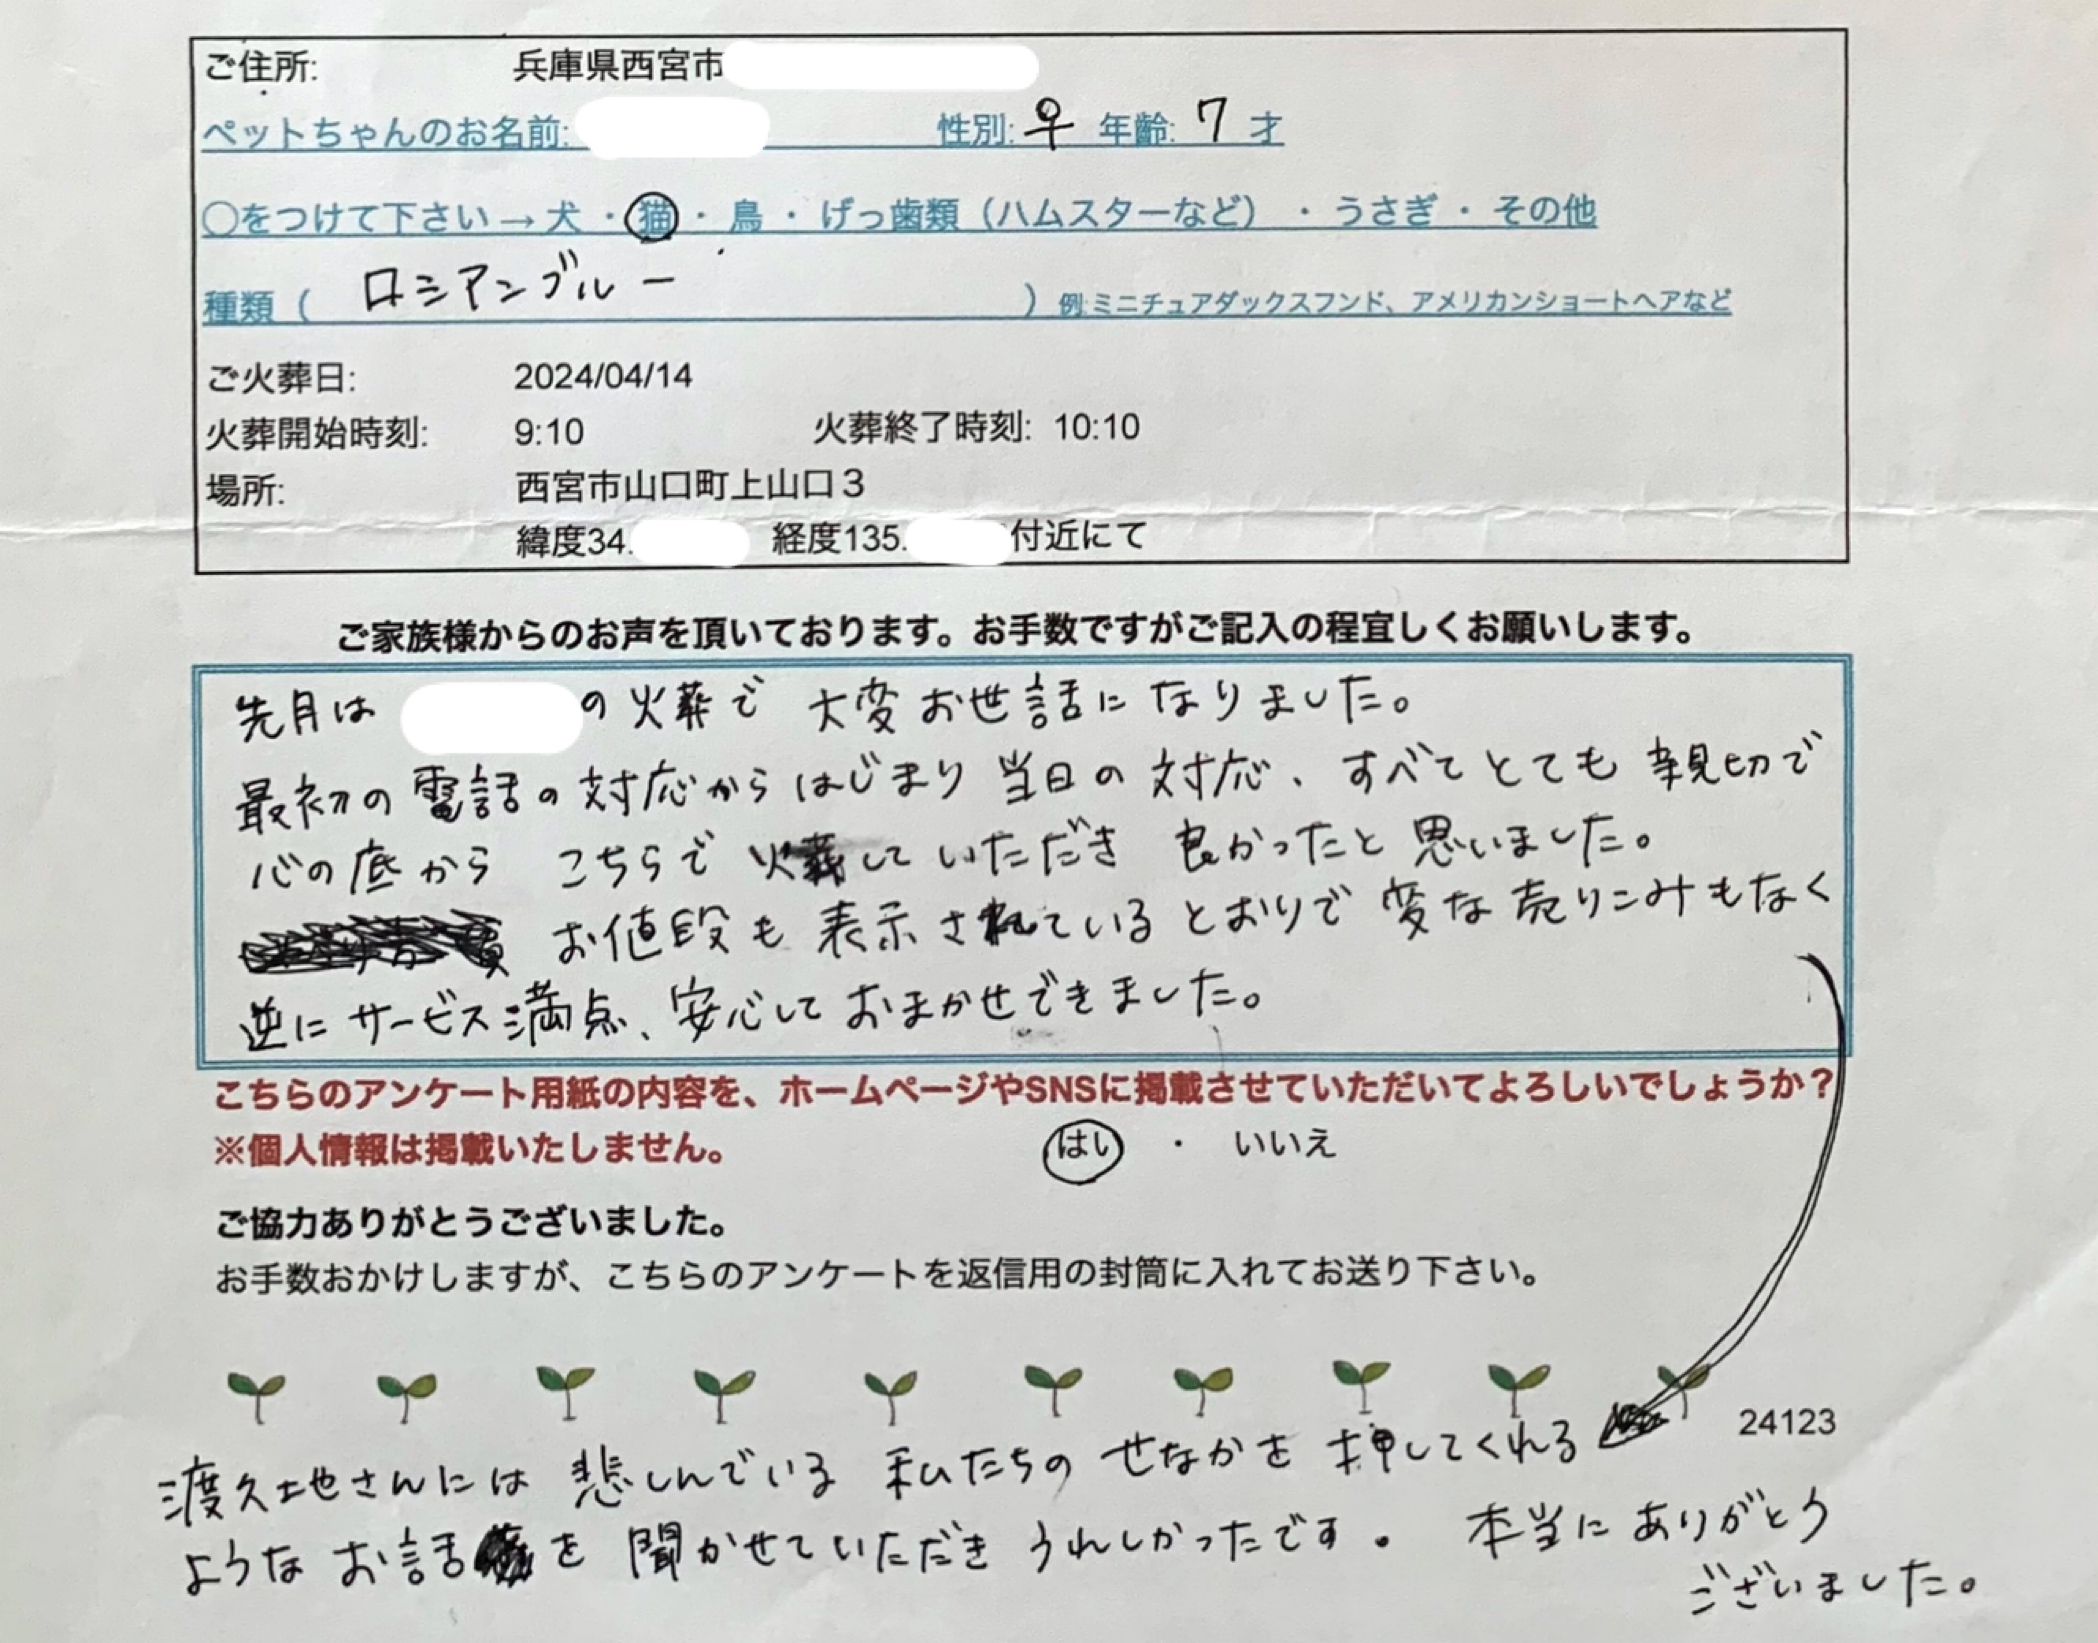 ご住所: 兵庫県西宮市
ペットちゃんのお名前: 性別: ♀ 年齢: 7 才
○をつけて下さい→犬・猫・鳥・げっ歯類（ハムスターなど）・うさぎ・その他
種類（ ロシアンブルー ）例:ミニチュアダックスフンド、アメリカンショートヘアなど
ご火葬日: 2024/04/14
火葬開始時刻: 9:10 火葬終了時刻: 10:10
場所: 西宮市山口町上山口３
緯度34. 経度135. 付近にて
ご家族様からのお声を頂いております。お手数ですがご記入の程宜しくお願いします。
先月は の火葬で 大変お世話になりました。
最初の電話の対応からはじまり当日の対応、すべてとても親切で
心の底から こちらで火葬していただき 良かったと思いました。
お値段も表示されているとおりで変な売りこみもなく
逆にサービス満点、安心しておまかせできました。
こちらのアンケート用紙の内容を、ホームページやSNSに掲載させていただいてよろしいでしょうか？
※個人情報は掲載いたしません。 はい ・ いいえ
ご協力ありがとうございました。
お手数おかけしますが、こちらのアンケートを返信用の封筒に入れてお送り下さい。
24123
渡久地さんには悲しんでいる私たちのせなかを押してくれる
ようなお話を聞かせていただきうれしかったです。本当にありがとう
ございました。